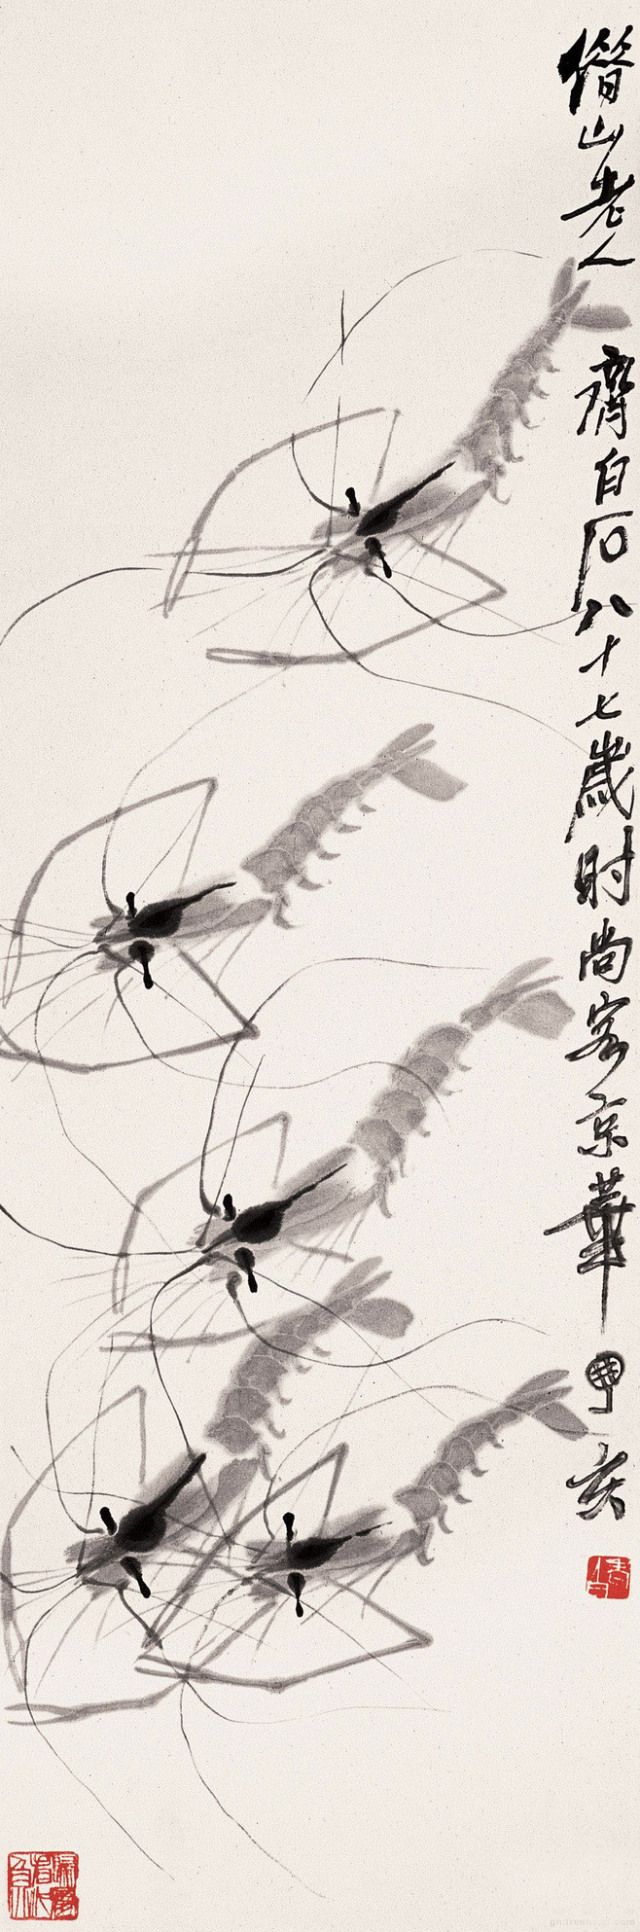 借山老人齊白石八十七歲时尚客京華